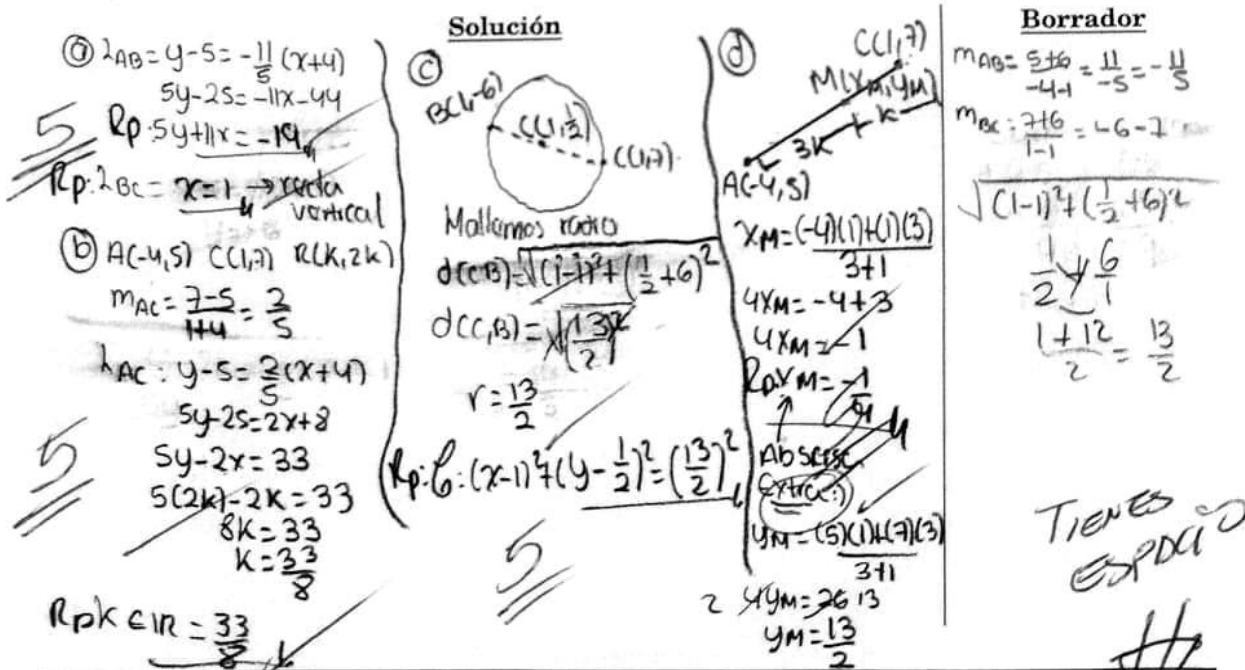 Solución
Borrador
ⓐ LAB = y-5 = -11/5 (x+4)
5y-25 = -11x-44
Rp: 5y+11x = -19
Rp: LBC = x=1 → recta
vertical
5
ⓑ A(-4,5) C(1,7) R(k,2k)
mAC = 7-5/1+4 = 2/5
LAC: y-5 = 2/5 (x+4)
5y-25 = 2x+8
5y-2x = 33
5(2k)-2k = 33
8k = 33
k = 33/8
Rp k ∈ IR = 33/8
5
ⓒ
B(1,-6)
C(1,1/2)
C(1,7)
Hallamos radio
d(C,B) = √(1-1)²+(1/2+6)²
d(C,B) = √(13/2)²
r = 13/2
Rp: C: (x-1)²+(y-1/2)² = (13/2)²
5
ⓓ
C(1,7)
M(xM,yM)
k
3k
A(-4,5)
xM = (-4)(1)+(1)(3)/3+1
4xM = -4+3
4xM = -1
Rp. xM = -1/4
Abscisa
Extra:)
yM = (5)(1)+(7)(3)/3+1
2 4yM = 26 13
yM = 13/2
mAB = 5+6/-4-1 = 11/-5 = -11/5
mBC = 7+6/1-1 = -6-7
√(1-1)²+(1/2+6)²
1/2 + 6/1
1+12/2 = 13/2
TIENES
ESPACIO